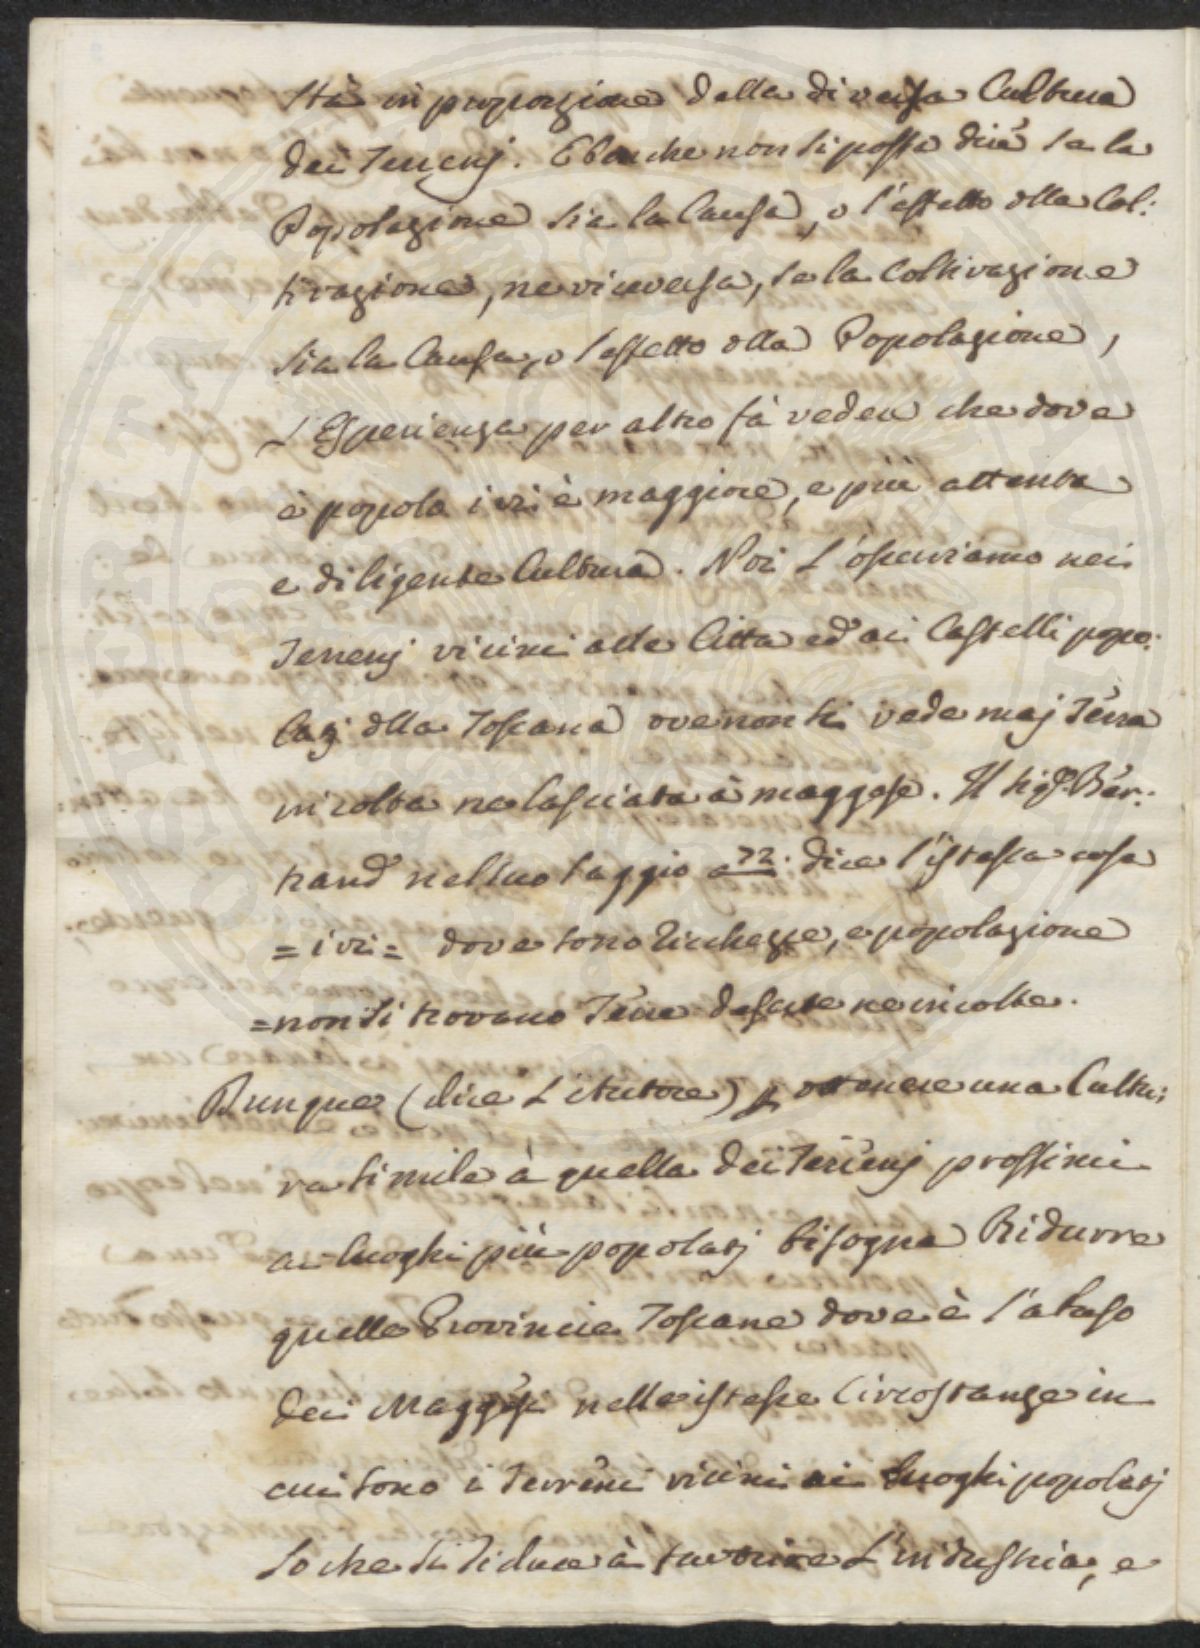 Stà in proporzione della diversa Cultura
dei Terrenj. E benche non si possa dire se la
Popolazione sia la Causa, o l'effetto dlla Col:
tivazione, ne viceversa, se la Coltivazione
sia la Causa, o l'effetto dlla Popolazione,
L'Esperienza per altro fà vedere che dove
è popolo ivi è maggiore, e più attenta
e diligente Cultura. Noi L'osserviamo nei
Terrenj vicini alle Citta ed ai Castelli popo:
lazj dlla Toscana ove non si vede maj Terra
incolta ne lasciata à maggese. Il Sig.r Ber:
trand nel suo Saggio a 72. dice l'istessa cosa
= ivi = dove sono Ricchezze, e popolazione
= non si trovano Terre deserte ne incolte.
Dunque (dice L'Autore) p ottenere una Cultu:
ra simile à quella dei Terrenj prossimi
ai Luoghi più popolatj bisogna Ridurre
quelle Provincie Toscane dove è l'abuso
dei Maggesi nelle istesse Circostanze in
cui sono i Terreni vicini ai Luoghi popolatj
lo che si riduce à favorire L'industria, e